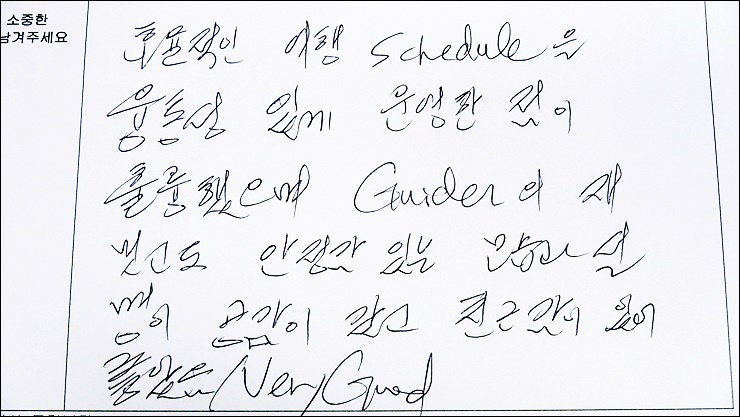 소중한
남겨주세요
효율적인 여행 Schedule을
융통성 있게 운영한 점이
훌륭했으며 Guider의 재
밋고도 안정감 있는 말과 설
명이 공감이 갔고 친근감이 있어
좋았음 (Very Good